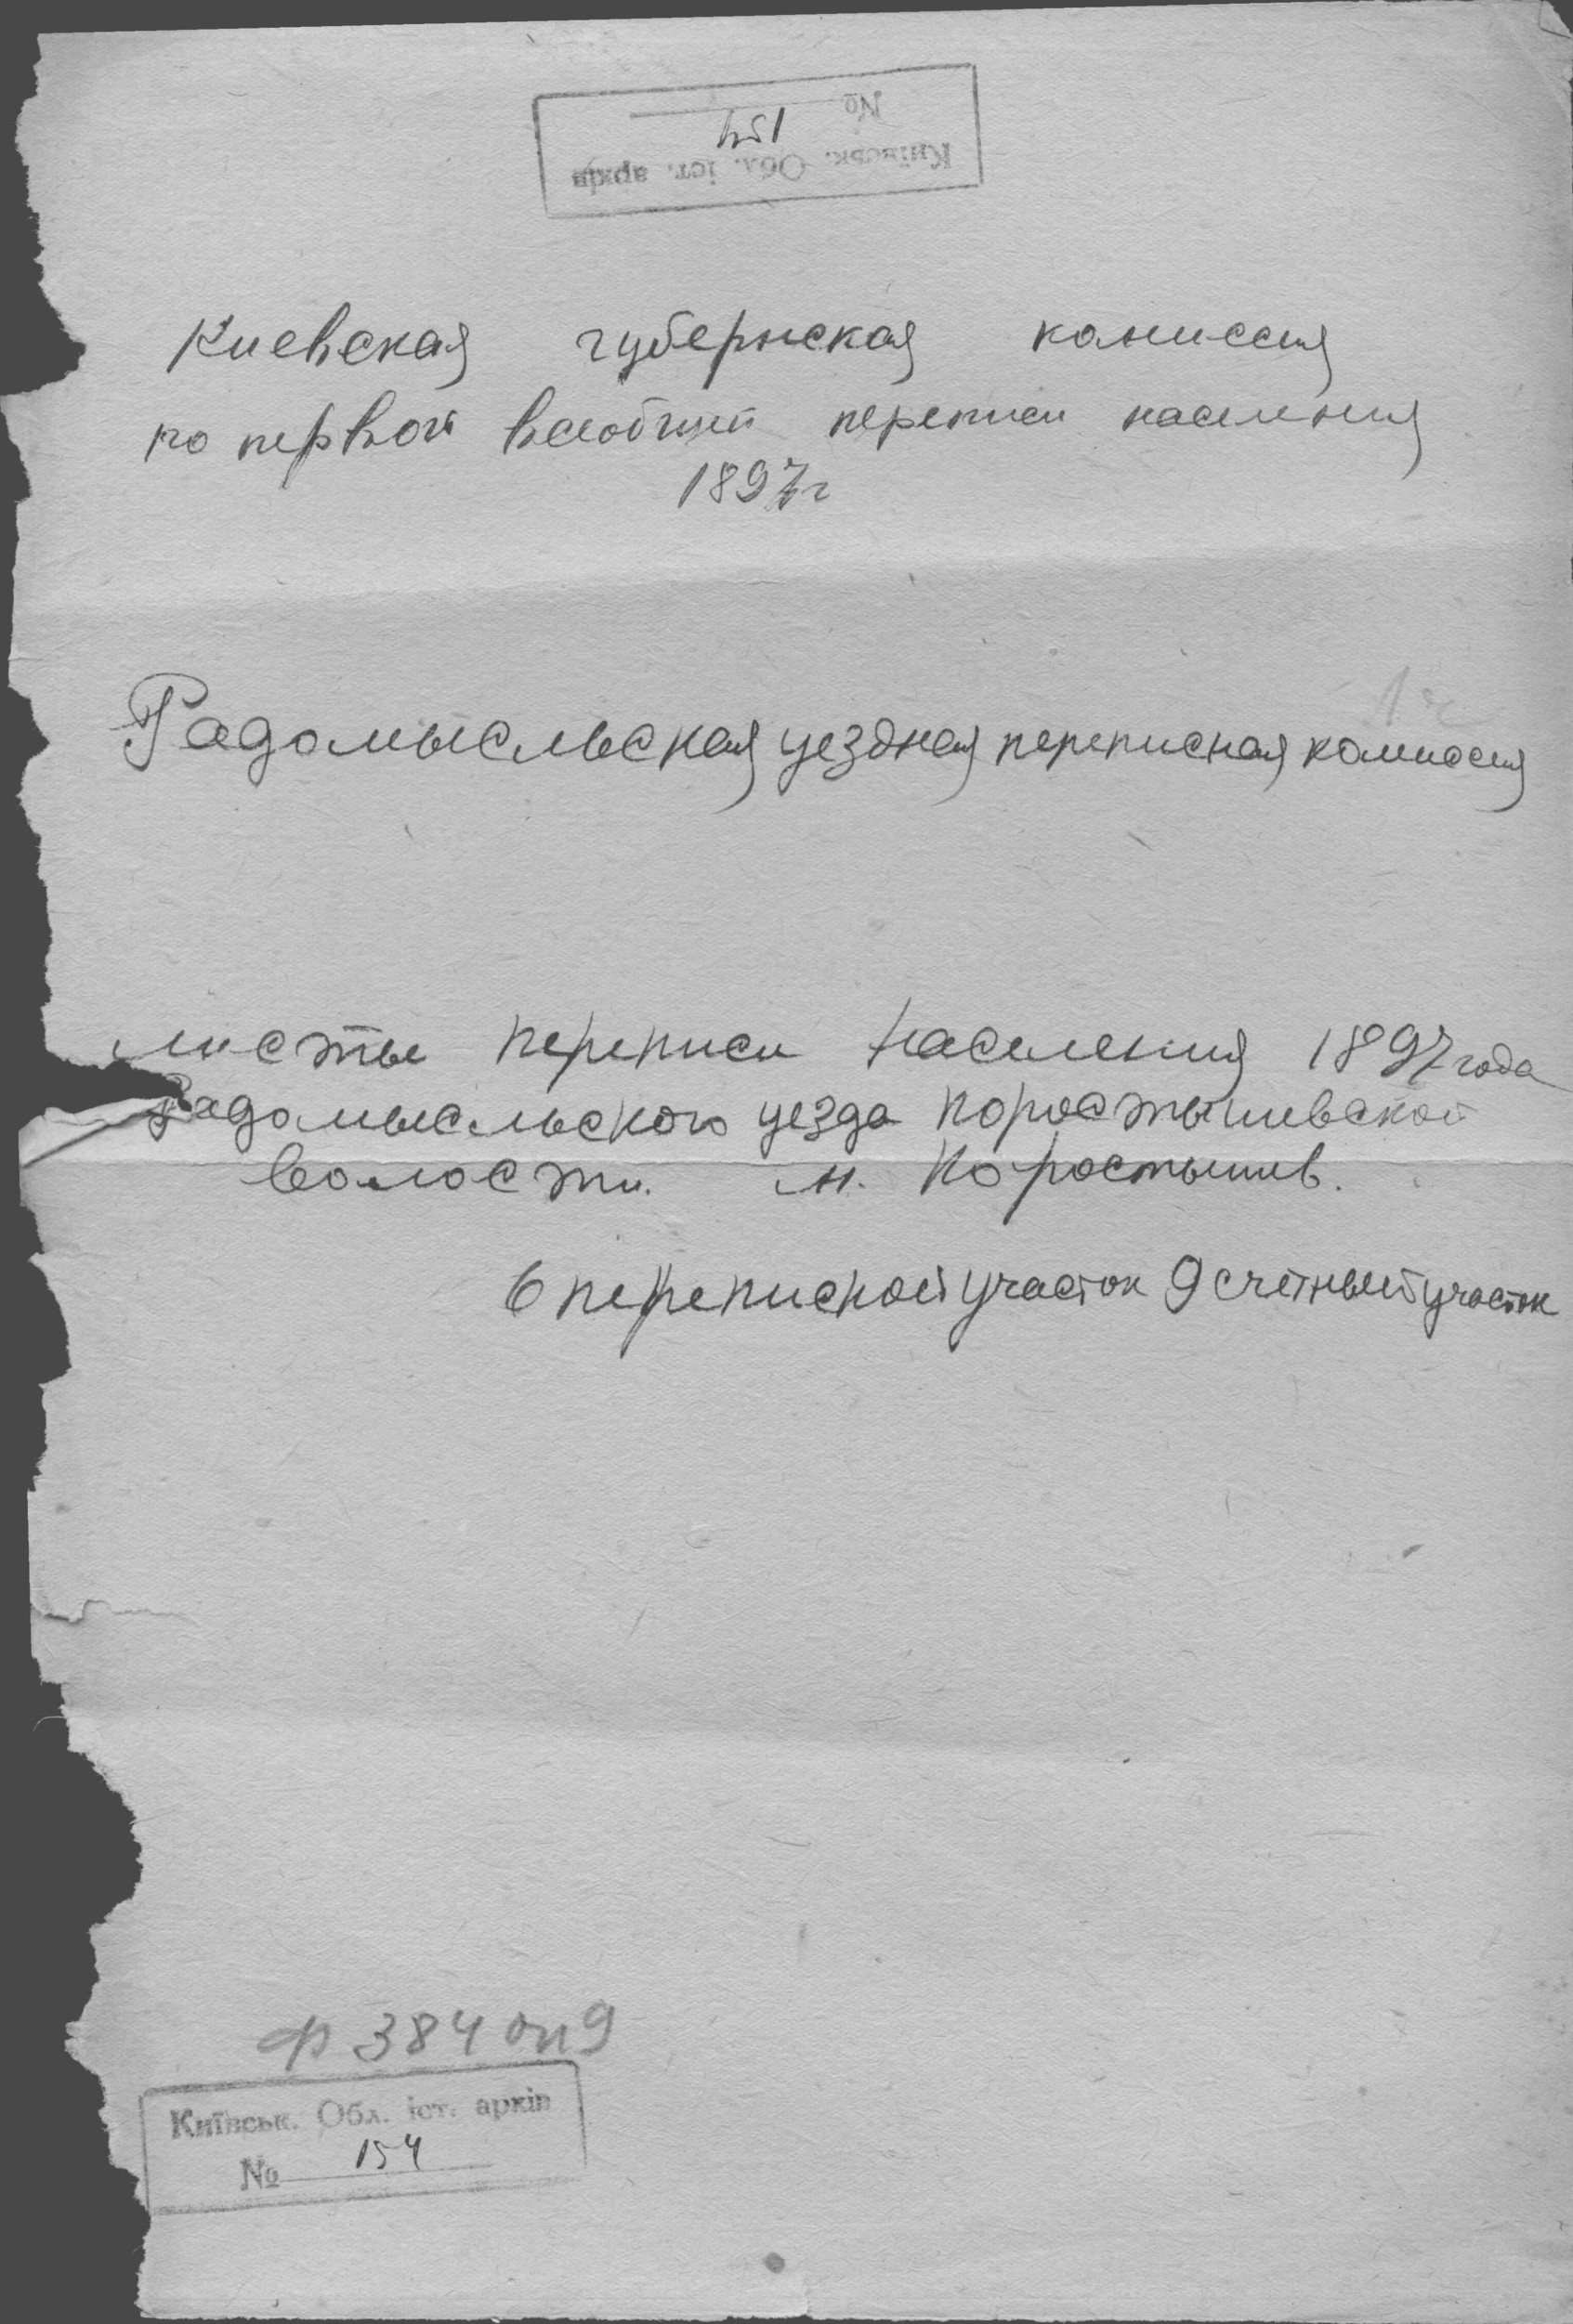 № 154
Київськ. Обл. іст. архів
Киевская губернская комиссия
по первой всеобщей переписи населения
1897г
Радомысльская уездная переписная комиссия
листы переписи населения 1897 года
Радомысльского уезда Коростышевской
волости. м. Коростышев.
6 переписной участок 9 счетный участок
ф 384 оп 9
Київськ. Обл. іст. архів
№ 154